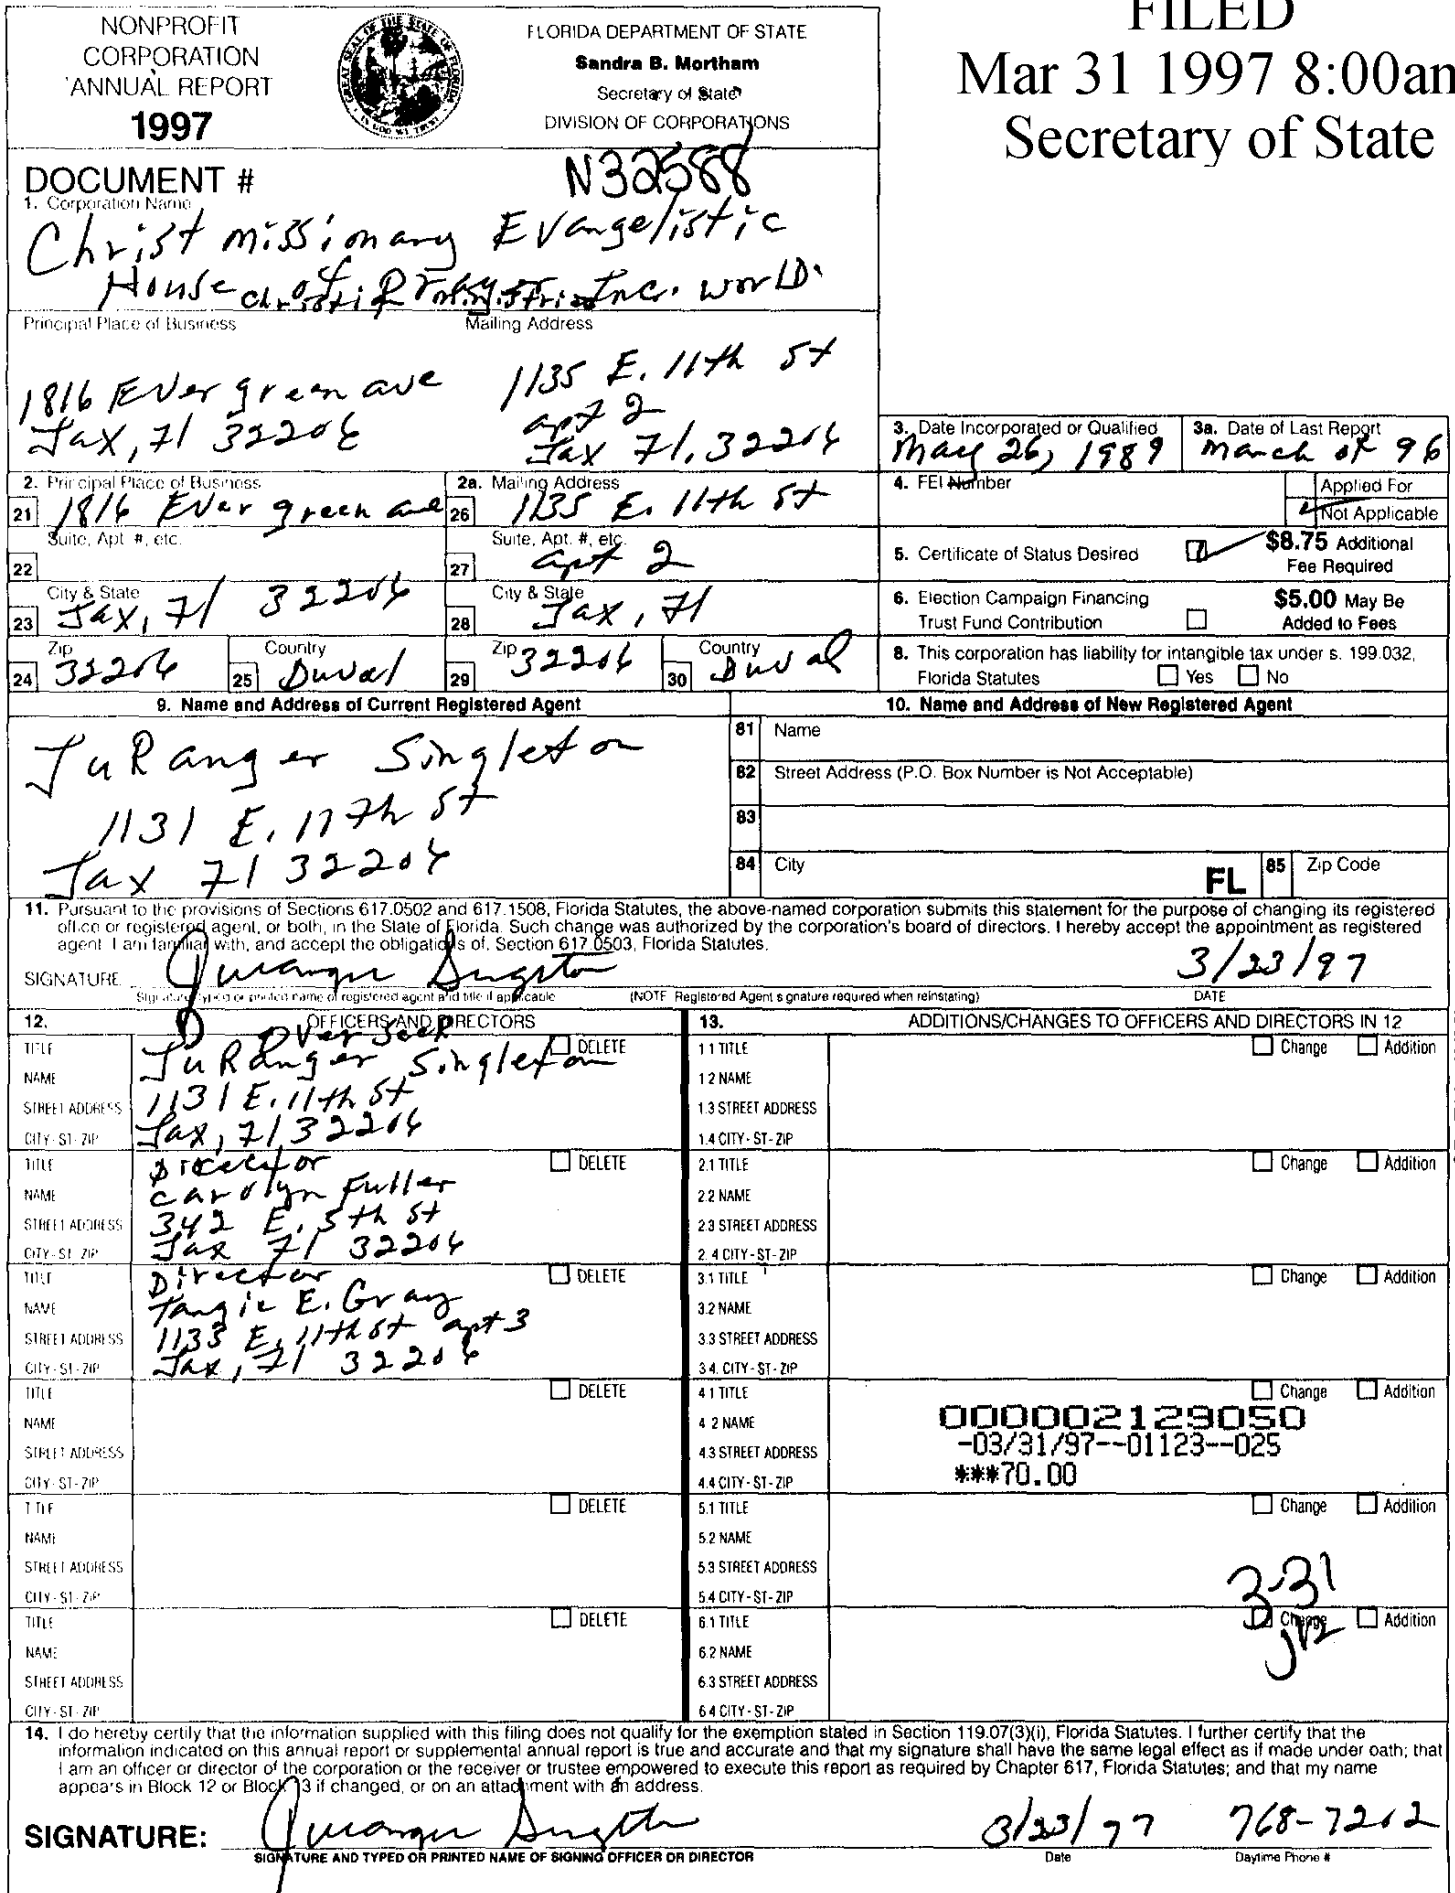 NONPROFIT
CORPORATION
ANNUAL REPORT
1997
FLORIDA DEPARTMENT OF STATE
Sandra B. Mortham
Secretary of State
DIVISION OF CORPORATIONS
FILED
Mar 31 1997 8:00am
Secretary of State
DOCUMENT # N32588
1. Corporation Name
Christ missionary Evangelistic
House of Inc. world.
Principal Place of Business Mailing Address
1816 Evergreen ave
Jax, Fl 32206
1135 E. 11th St
apt 2
Jax Fl. 32206
3. Date Incorporated or Qualified
May 26, 1989
3a. Date of Last Report
March of 96
2. Principal Place of Business
21 1816 Evergreen ave
2a. Mailing Address
26 1135 E. 11th St
4. FEI Number
Applied For
Not Applicable
Suite, Apt. #, etc.
22
Suite, Apt. #, etc.
27 apt 2
5. Certificate of Status Desired
$8.75 Additional
Fee Required
City & State
23 Jax, Fl 32206
City & State
28 Jax, Fl
6. Election Campaign Financing
Trust Fund Contribution
$5.00 May Be
Added to Fees
Zip
24 32206
Country
25 Duval
Zip
29 32206
Country
30 Duval
8. This corporation has liability for intangible tax under s. 199.032,
Florida Statutes Yes No
9. Name and Address of Current Registered Agent
JuRanger Singleton
1131 E. 11th St
Jax Fl 32206
10. Name and Address of New Registered Agent
81 Name
82 Street Address (P.O. Box Number is Not Acceptable)
83
84 City FL 85 Zip Code
11. Pursuant to the provisions of Sections 617.0502 and 617.1508, Florida Statutes, the above-named corporation submits this statement for the purpose of changing its registered
office or registered agent, or both, in the State of Florida. Such change was authorized by the corporation's board of directors. I hereby accept the appointment as registered
agent. I am familiar with, and accept the obligations of, Section 617.0503, Florida Statutes.
SIGNATURE 3/23/97
Signature, typed or printed name of registered agent and title if applicable (NOTE Registered Agent signature required when reinstating) DATE
12. OFFICERS AND DIRECTORS
TITLE D Overseer DELETE
NAME JuRanger Singleton
STREET ADDRESS 1131 E. 11th St
CITY-ST-ZIP Jax, Fl 32206
TITLE Director DELETE
NAME Carolyn Fuller
STREET ADDRESS 342 E. 5th St
CITY-ST-ZIP Jax Fl 32206
TITLE Director DELETE
NAME Tangie E. Gray
STREET ADDRESS 1133 E. 11th St apt 3
CITY-ST-ZIP Jax, Fl 32206
TITLE DELETE
NAME
STREET ADDRESS
CITY-ST-ZIP
TITLE DELETE
NAME
STREET ADDRESS
CITY-ST-ZIP
TITLE DELETE
NAME
STREET ADDRESS
CITY-ST-ZIP
13. ADDITIONS/CHANGES TO OFFICERS AND DIRECTORS IN 12
1.1 TITLE Change Addition
1.2 NAME
1.3 STREET ADDRESS
1.4 CITY-ST-ZIP
2.1 TITLE Change Addition
2.2 NAME
2.3 STREET ADDRESS
2.4 CITY-ST-ZIP
3.1 TITLE Change Addition
3.2 NAME
3.3 STREET ADDRESS
3.4. CITY-ST-ZIP
4.1 TITLE Change Addition
4.2 NAME 000002129050
4.3 STREET ADDRESS -03/31/97--01123--025
4.4 CITY-ST-ZIP ***70.00
5.1 TITLE Change Addition
5.2 NAME
5.3 STREET ADDRESS
5.4 CITY-ST-ZIP
3-31
6.1 TITLE Change Addition
6.2 NAME
6.3 STREET ADDRESS
6.4 CITY-ST-ZIP
14. I do hereby certify that the information supplied with this filing does not qualify for the exemption stated in Section 119.07(3)(i), Florida Statutes. I further certify that the
information indicated on this annual report or supplemental annual report is true and accurate and that my signature shall have the same legal effect as if made under oath; that
I am an officer or director of the corporation or the receiver or trustee empowered to execute this report as required by Chapter 617, Florida Statutes; and that my name
appears in Block 12 or Block 13 if changed, or on an attachment with an address.
SIGNATURE: 3/23/97 768-7202
SIGNATURE AND TYPED OR PRINTED NAME OF SIGNING OFFICER OR DIRECTOR Date Daytime Phone #